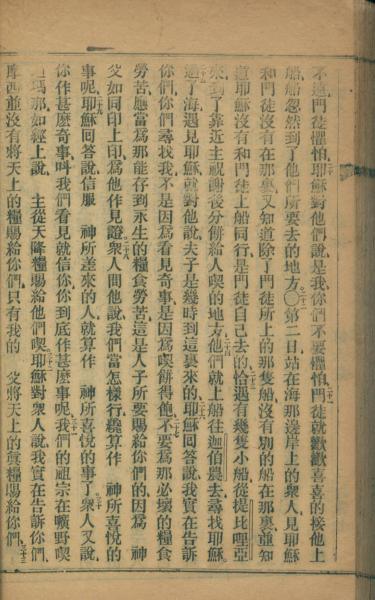 不遠門徒懼怕耶穌對他們說是我你們不要懼怕門徒就歡歡喜喜的接他上
船船忽然到了他們所要去的地方〇第二日站在海那邊岸上的衆人見耶穌
和門徒沒有在那裏又知道除了門徒所上的那隻船沒有別的船在那裏並知
道耶穌沒有和門徒上船同行是門徒自己去的恰遇有幾隻小船從提比哩亞
來到了靠近主祝謝後分餅給人喫的地方他們就上船往迦伯農去尋找耶穌
過了海遇見耶穌就對他說夫子是幾時到這裏來的耶穌回答說我實在告訴
你們你們尋找我不是因爲看見奇事是因爲喫餅得飽不要爲那必壞的糧食
勞苦應當爲那能存到永生的糧食勞苦這是人子所要賜給你們的因爲 神
父如同印上印爲他作見證衆人問他說我們當怎樣行纔算作 神所喜悅的
事呢耶穌回答說信服 神所差來的人就算作 神所喜悅的事了衆人又說
你作甚麼奇事叫我們看見就信你你到底作甚麼事呢我們的祖宗在曠野喫
過瑪那如經上說 主從天降糧賜給他們喫耶穌對衆人說我實在告訴你們
摩西並沒有將天上的糧賜給你們只有我的 父將天上的眞糧賜給你們